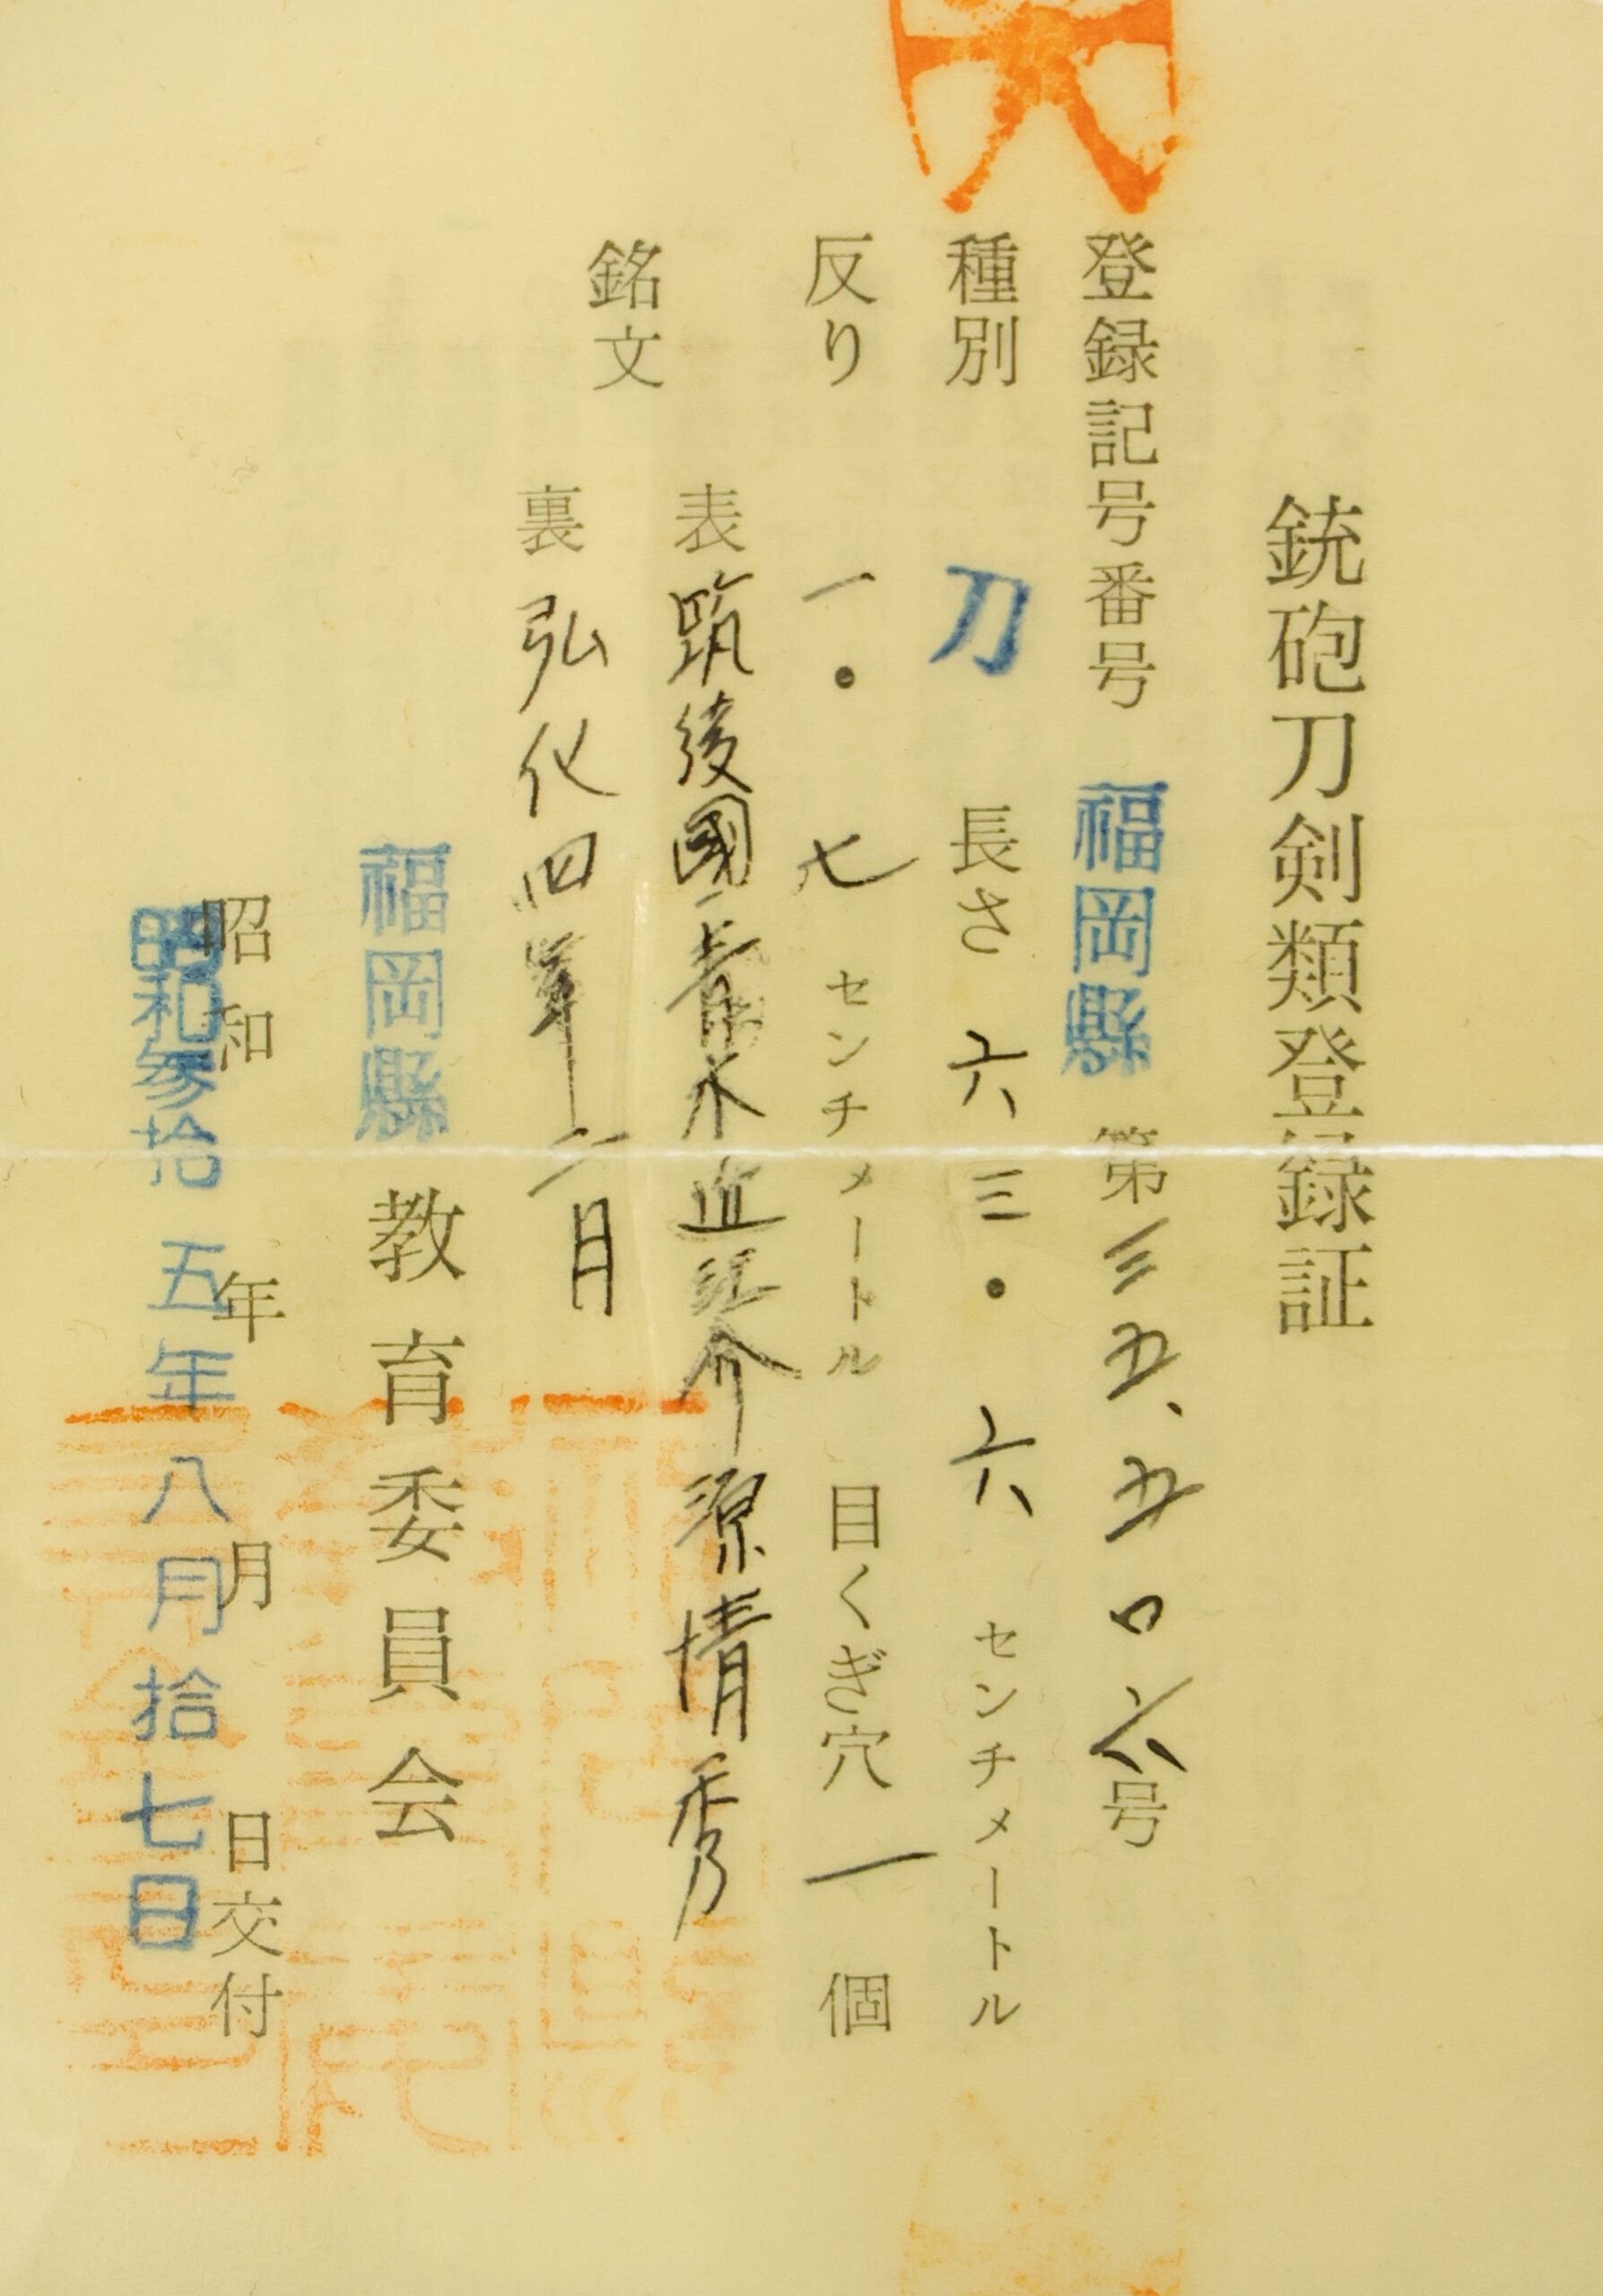 銃砲刀剣類登録証
登録記号番号 福岡縣 第三五、五〇六号
種別 刀 長さ 六三・六 センチメートル
反り 一・七 センチメートル 目くぎ穴 一 個
銘文
表 筑後國青木近江介源清秀
裏 弘化四年二月
福岡縣 教育委員会
昭和 年 月 日交付
昭和参拾五年八月拾七日